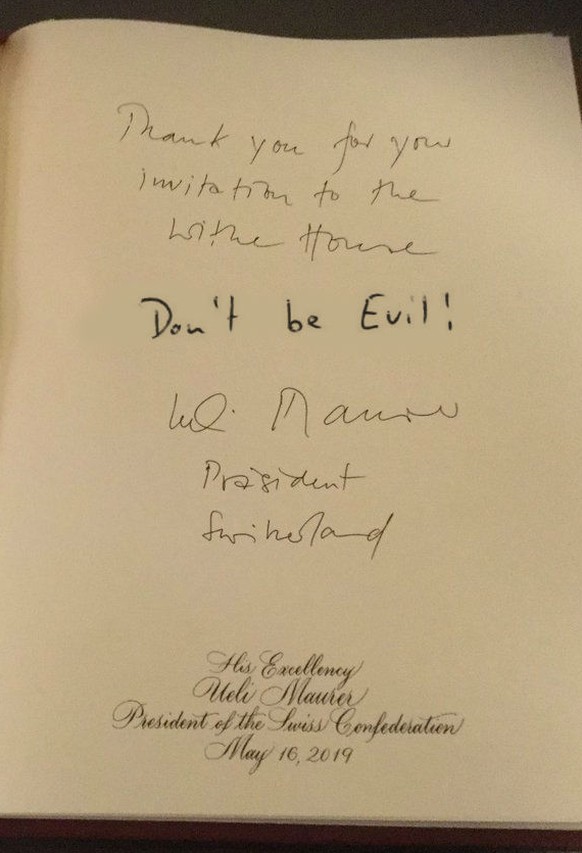 Thank you for your
invitation to the
Withe House
Don't be Evil!
Ueli Maurer
Präsident
Switzerland
His Excellency
Ueli Maurer
President of the Swiss Confederation
May 16, 2019